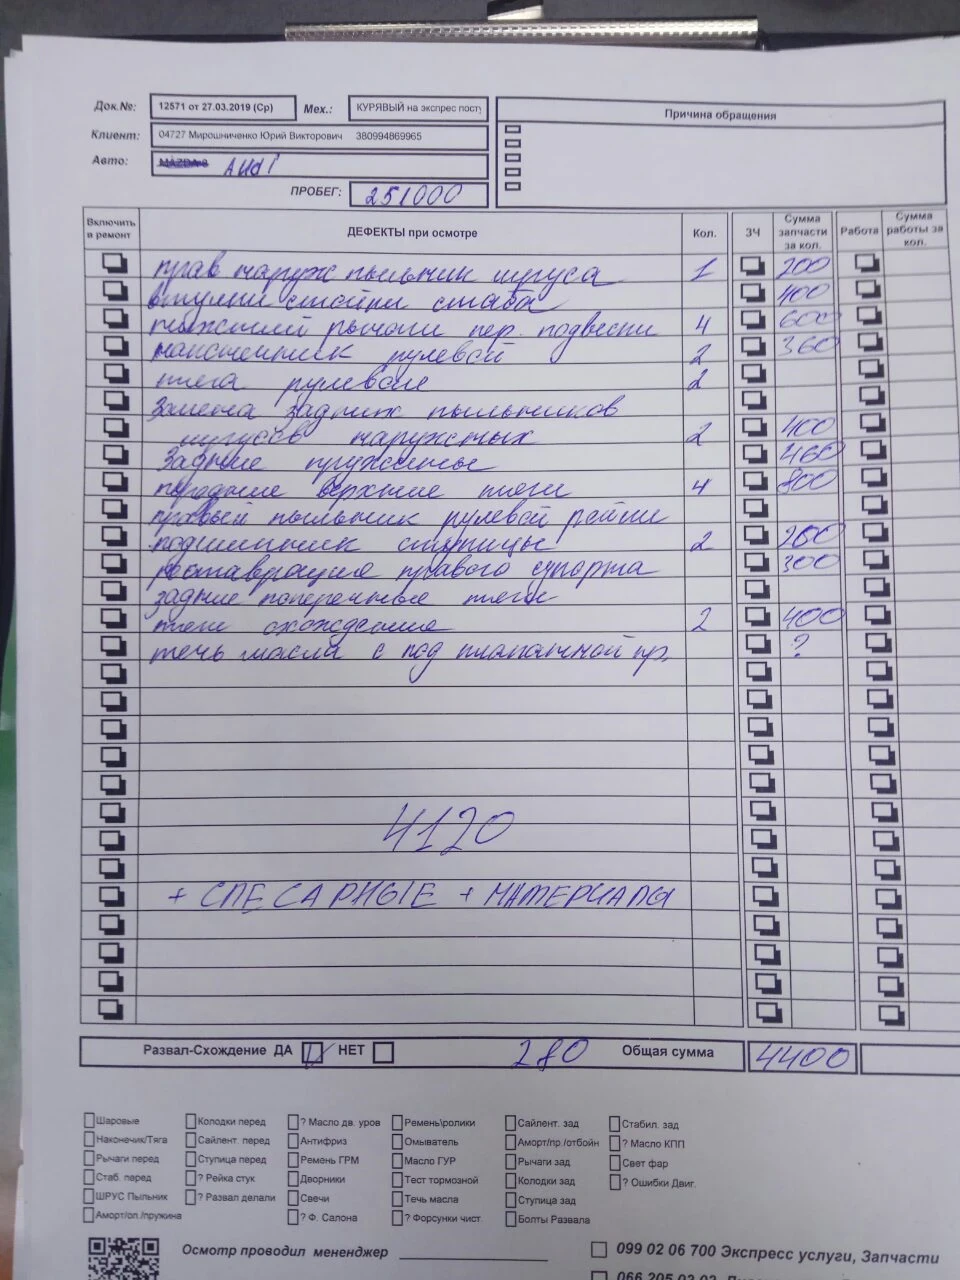 Док.№: 12571 от 27.03.2019 (Ср) Мех.: КУРЯВЫЙ на экспрес пост
Причина обращения
Клиент: 04727 Мирошниченко Юрий Викторович 380994869965
Авто: MAZDA 6 AUDI
ПРОБЕГ: 251000
Включить в ремонт ДЕФЕКТЫ при осмотре Кол. ЗЧ Сумма запчасти за кол. Работа Сумма работы за кол.
прав наруж пыльник шруса 1 200
втулки стойки стаба 400
нижний рычаги пер. подвески 4 600
наконечник рулевой 2 360
тяга рулевые 2
Замена задних пыльников
шрусов наружных 2 400
Задние пружины 460
передние верхние тяги 4 800
правый пыльник рулевой рейки
подшипник ступицы 2 200
реставрация правого супорта 300
задние поперечные тяги
тяги схождение 2 400
течь масла с под клапанной кр. ?
4120
+ СЛЕСАРНЫЕ + МАТЕРИАЛЫ
Развал-Схождение ДА НЕТ 280 Общая сумма 4400
Шаровые Колодки перед ? Масло дв. уров Ремень\ролики Сайлент. зад Стабил. зад
Наконечик/Тяга Сайлент. перед Антифриз Омыватель Аморт/пр./отбойн ? Масло КПП
Рычаги перед Ступица перед Ремень ГРМ Масло ГУР Рычаги зад Свет фар
Стаб. перед ? Рейка стук Дворники Тест тормозной Колодки зад ? Ошибки Двиг.
ШРУС Пыльник ? Развал делали Свечи Течь масла Ступица зад
Аморт/оп./пружина ? Ф. Салона ? Форсунки чист. Болты Развала
Осмотр проводил мененджер
099 02 06 700 Экспресс услуги, Запчасти